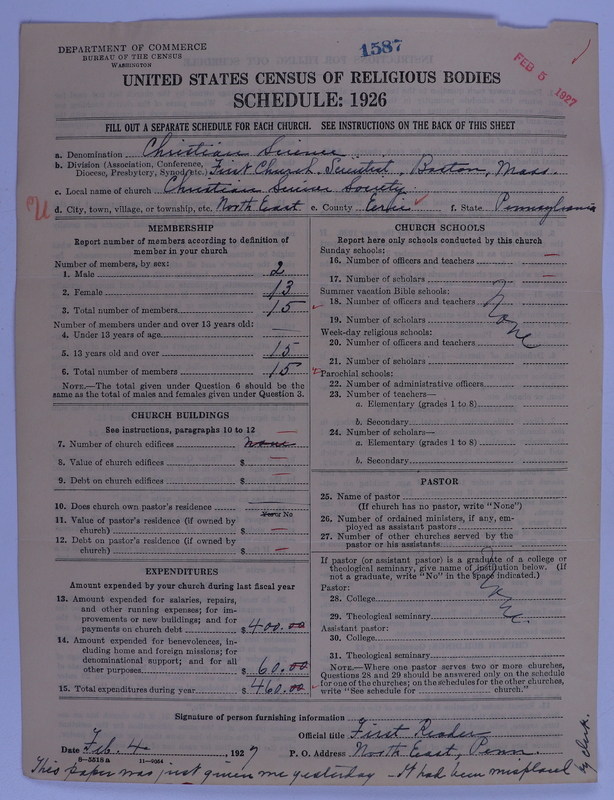 DEPARTMENT OF COMMERCE
BUREAU OF THE CENSUS
WASHINGTON
1587
FEB 5 1927
UNITED STATES CENSUS OF RELIGIOUS BODIES
SCHEDULE: 1926
FILL OUT A SEPARATE SCHEDULE FOR EACH CHURCH. SEE INSTRUCTIONS ON THE BACK OF THIS SHEET
a. Denomination Christian Science
b. Division (Association, Conference, Diocese, Presbytery, Synod, etc.) First Church, Scientist, Boston, Mass.
c. Local name of church Christian Science Society
d. City, town, village, or township, etc. North East e. County Eerie f. State Pennsylvania
MEMBERSHIP
Report number of members according to definition of member in your church
Number of members, by sex:
1. Male 2
2. Female 13
3. Total number of members 15
Number of members under and over 13 years old:
4. Under 13 years of age
5. 13 years old and over 15
6. Total number of members 15
NOTE.—The total given under Question 6 should be the same as the total of males and females given under Question 3.
CHURCH BUILDINGS
See instructions, paragraphs 10 to 12
7. Number of church edifices None
8. Value of church edifices $ —
9. Debt on church edifices $ —
10. Does church own pastor's residence
Yes or No
11. Value of pastor's residence (if owned by church) $ —
12. Debt on pastor's residence (if owned by church) $ —
EXPENDITURES
Amount expended by your church during last fiscal year
13. Amount expended for salaries, repairs, and other running expenses; for improvements or new buildings; and for payments on church debt $ 400.00
14. Amount expended for benevolences, including home and foreign missions; for denominational support; and for all other purposes $ 60.00
15. Total expenditures during year $ 460.00
CHURCH SCHOOLS
Report here only schools conducted by this church
Sunday schools:
16. Number of officers and teachers —
17. Number of scholars —
Summer vacation Bible schools:
18. Number of officers and teachers
None
19. Number of scholars
Week-day religious schools:
20. Number of officers and teachers
21. Number of scholars
Parochial schools:
22. Number of administrative officers
23. Number of teachers—
a. Elementary (grades 1 to 8)
b. Secondary
24. Number of scholars—
a. Elementary (grades 1 to 8)
b. Secondary
PASTOR
25. Name of pastor
(If church has no pastor, write "None")
26. Number of ordained ministers, if any, employed as assistant pastors
27. Number of other churches served by the pastor or his assistants
If pastor (or assistant pastor) is a graduate of a college or theological seminary, give name of institution below. (If not a graduate, write "No" in the space indicated.)
None.
Pastor:
28. College
29. Theological seminary
Assistant pastor:
30. College
31. Theological seminary
NOTE.—Where one pastor serves two or more churches, Questions 28 and 29 should be answered only on the schedule for one of the churches; on the schedules for the other churches, write "See schedule for ........ church."
Signature of person furnishing information
Official title First Reader
Date Feb. 4, 1927 P. O. Address North East, Penn.
8—5518a 11—9054
This paper was just given me yesterday - It had been misplaced
by clerk.